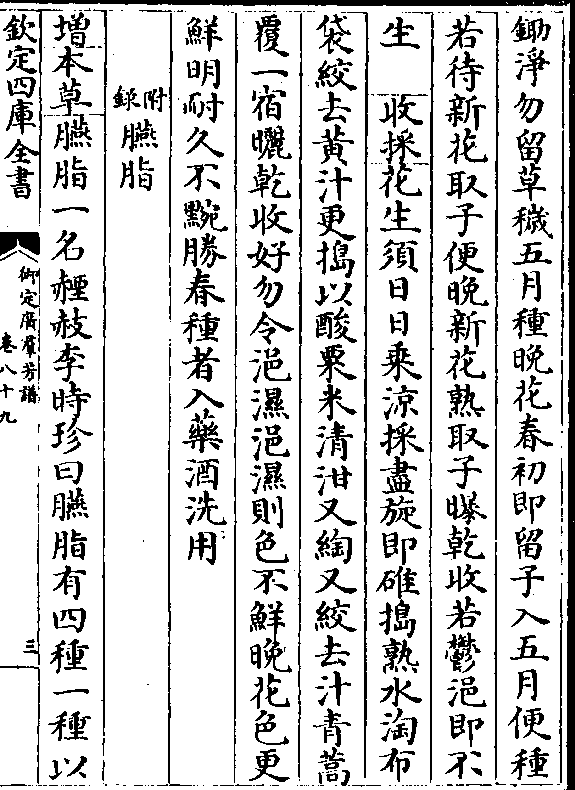 鋤淨勿留草穢五月種晚花春初即留子入五月便種
若待新花取子便晚新花熟取子曝乾收若鬱浥即不
生 收採花生須日日乘涼採盡旋即碓搗熟水淘布
袋絞去黃汁更搗以酸粟米清泔又綯又絞去汁青蒿
覆一宿曬乾收好勿令浥濕浥濕則色不鮮晚花色更
鮮明耐久不黦勝春種者入藥酒洗用
附錄臙脂
增本草臙脂一名䞓赦李時珍曰臙脂有四種一種以
欽定四庫全書
御定廣群芳譜
卷八十九
三